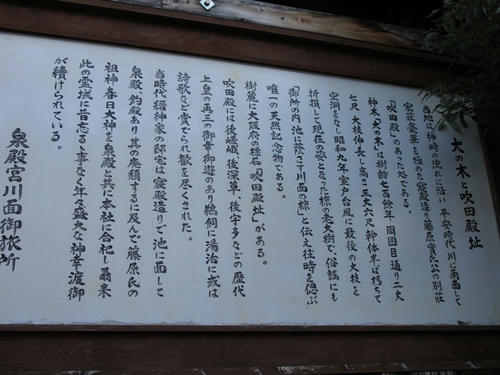 大の木と吹田殿址
当地は、神崎の流れに沿い 平安時代 川に南面して
宏荘豪華を極めた寝殿造り藤原実氏公の別荘
「吹田殿」のあった処である。
神木「大の木」は樹齢七百余年 周囲目通り二丈
七尺 大枝伸長し高さ三丈六尺 幹体半ば朽ちて
空洞をなし昭和九年室戸台風に最後の大枝を
折損して現在の姿となった椋の老大樹で、俗謡にも
「御所の内 池に蔭さす川面の椋」と伝え往時を偲ぶ
唯一の天然記念物である。
樹麓に大阪府の標石「吹田殿址」がある。
吹田殿には後嵯峨、後深草、後宇多などの歴代
上皇の再三の御幸御遊のあり鵜飼に湯治に或は
詩歌など賞でられ歓を尽くされた。
当時代 縉紳家の邸宅は寝殿造りで池に面して
泉殿、釣殿あり其の廃頽するに及んで藤原氏の
祖神 春日大神を泉殿と共に本社に合祀し爾来
此の霊域に昔 忘るゝ事なく年々盛大な神幸渡御
が続けられている。
泉殿宮川面御旅所